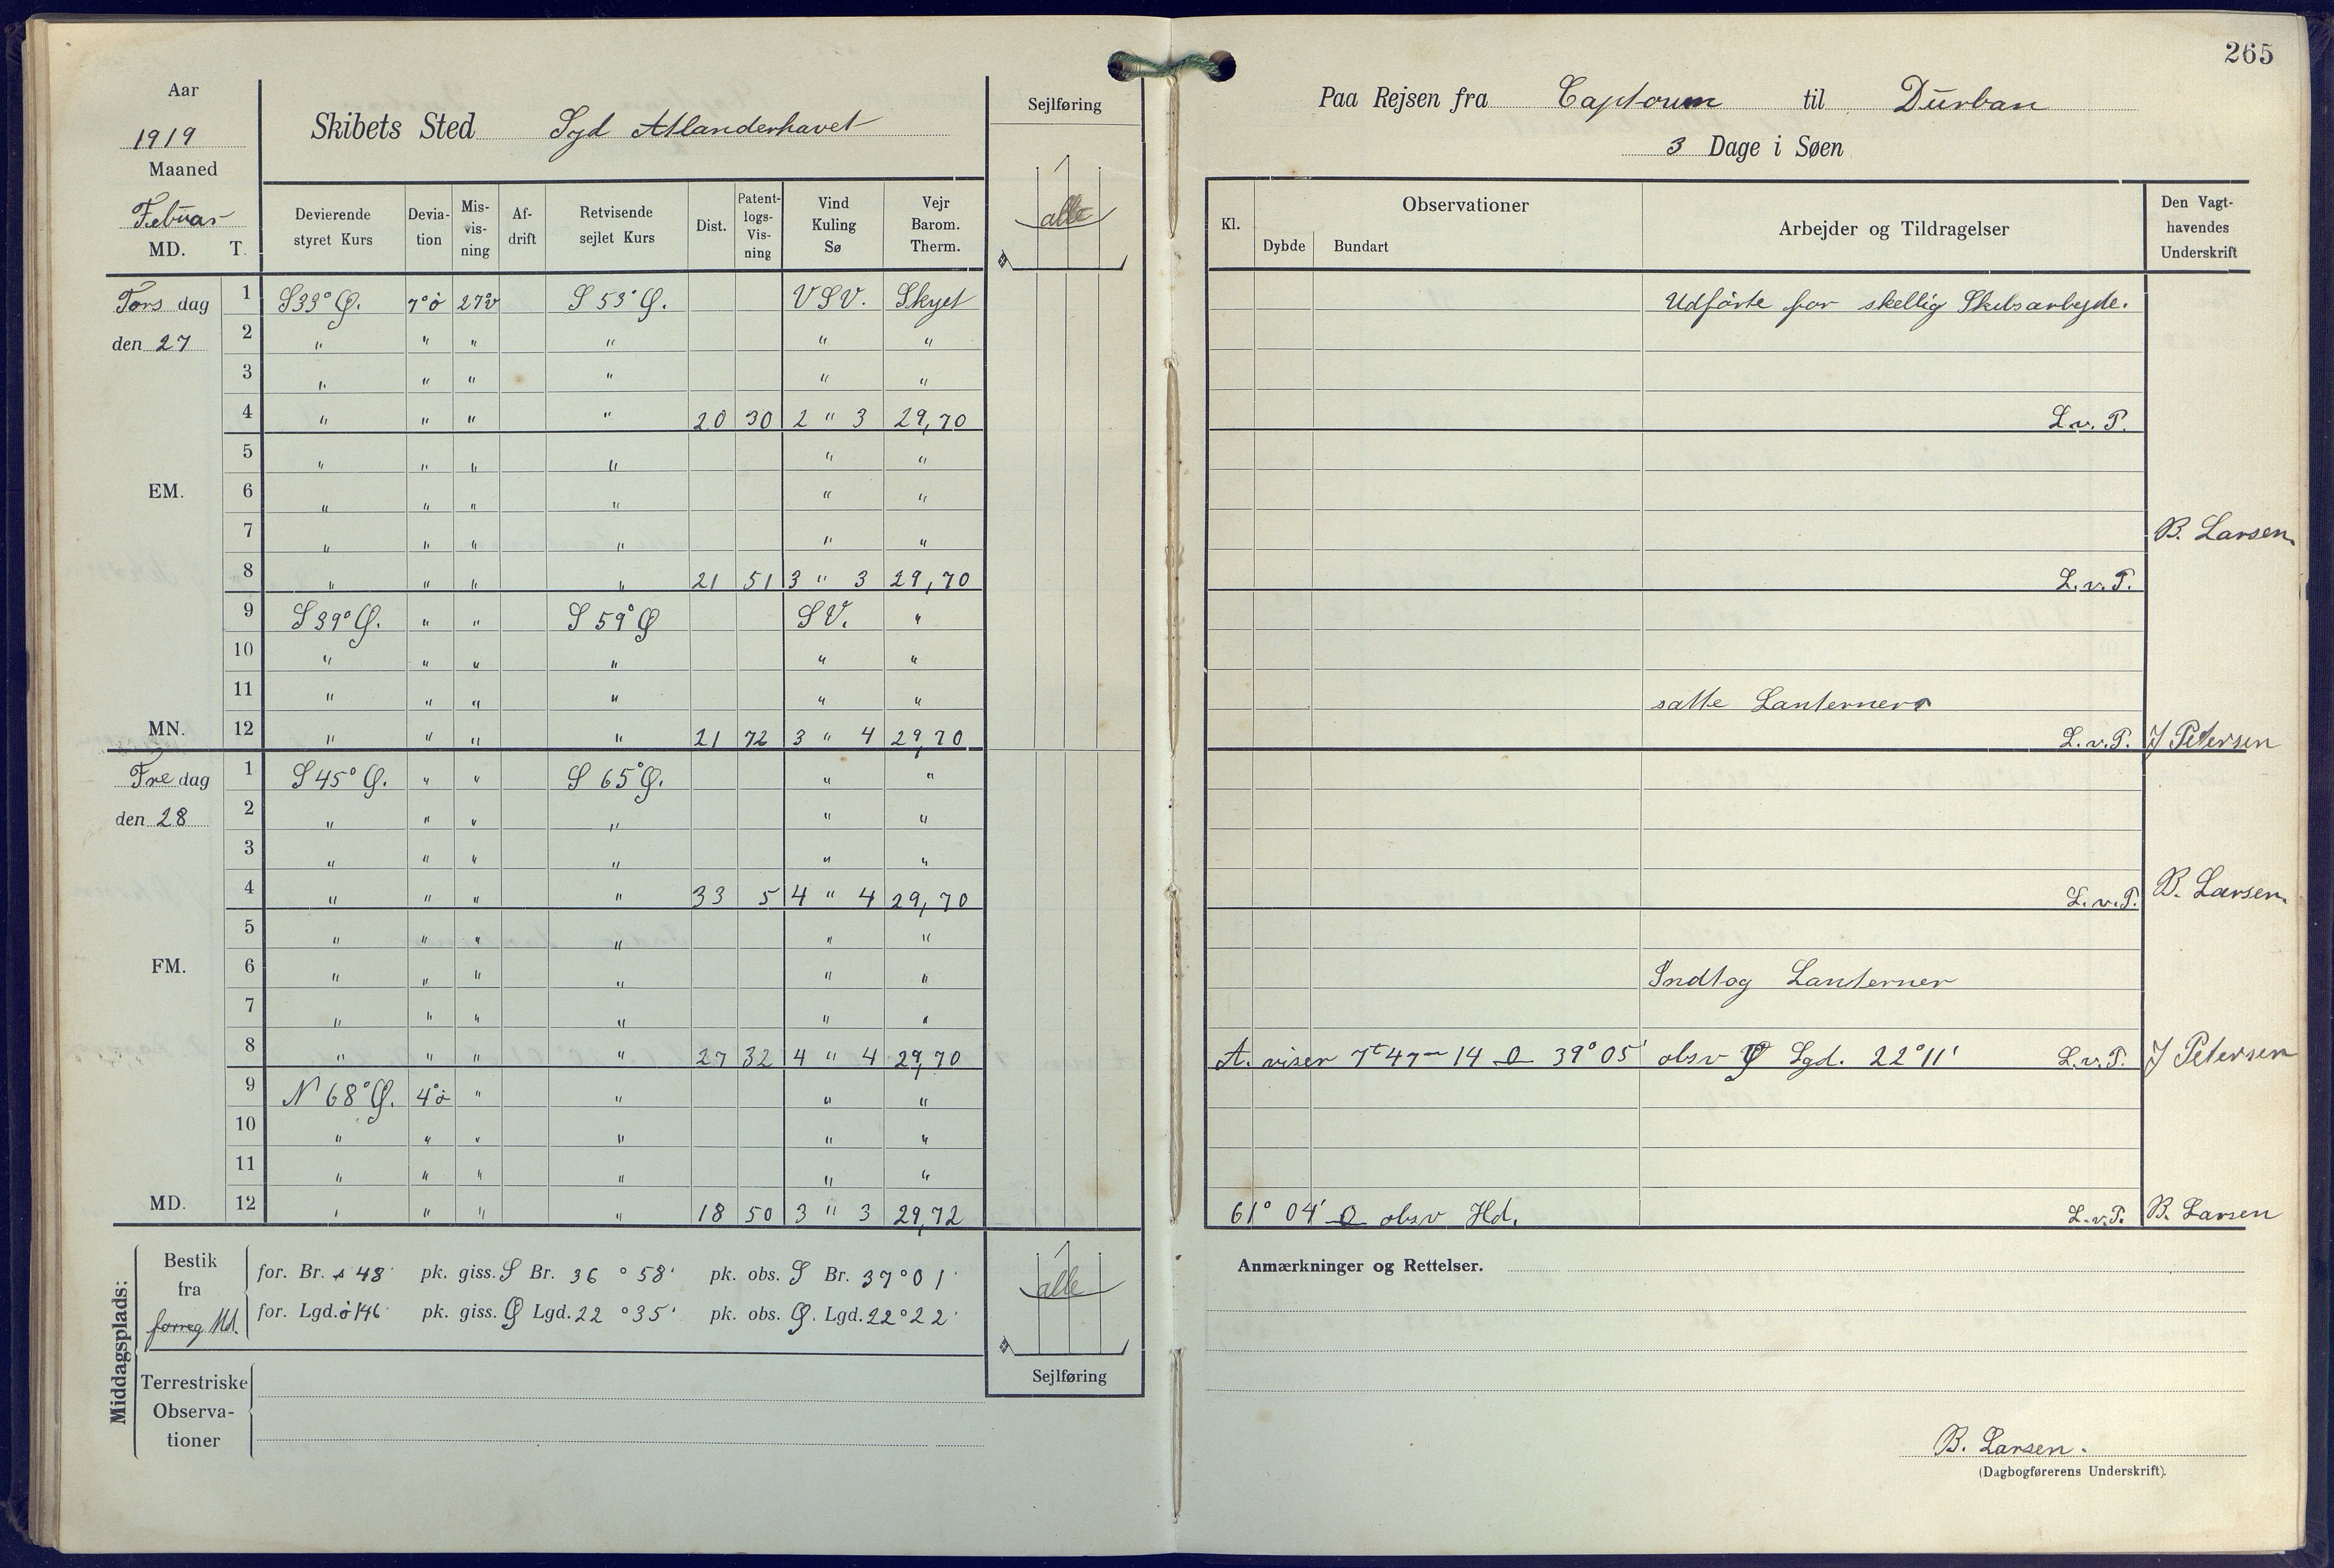 265
Aar
1919
Maaned
Febuar
MD. T.
Skibets Sted Syd Atlanderhavet
Sejlføring
alle
Paa Rejsen fra Captoum til Durban
3 Dage i Søen
Devierende styret Kurs Devia-tion Mis-vis-ning Af-drift Retvisende sejlet Kurs Dist. Patent-logs-Vis-ning Vind Kuling Sø Vejr Barom. Therm.
Kl. Dybde Bundart Observationer Arbejder og Tildragelser Den Vagt-havendes Underskrift
Tors dag 1 S 33° Ø. 7° ö 27° v S 53° Ø. VSV. Skyet Udförte for skellig Skibsarbejde.
den 27 2 " " " " " "
3 " " " " " "
4 " " " " 20 30 2 " 3 29,70 L.v.P.
5 " " " " " "
EM. 6 " " " " " "
7 " " " " " " B. Larsen.
8 " " " " 21 51 3 " 3 29,70 L.v.P.
9 S 39° Ø. " " S 59° Ø SV. "
10 " " " " " "
11 " " " " " " satte Lanterner
MN. 12 " " " " 21 72 3 " 4 29,70 L.v.P. J Petersen
Fre dag 1 S 45° Ø. " " S 65° Ø. " "
den 28 2 " " " " " "
3 " " " " " "
4 " " " " 33 5 4 " 4 29,70 L.v.P. B. Larsen.
5 " " " " " "
FM. 6 " " " " " " Indtog Lanterner
7 " " " " " "
8 " " " " 27 32 4 " 4 29,70 A. viser 7t 47m 14 O 39° 05' obsv Ø Lgd. 22° 11' L.v.P. J Petersen
9 N 68° Ø. 4° ö " " " "
10 " " " " " "
11 " " " " " "
MD. 12 " " " " 18 50 3 " 3 29,72 61° 04' O obsv Hd. L.v.P. B. Larsen
Middagsplads:
Bestik fra forreg Md.
for. Br. s 48' pk. giss. S Br. 36 ° 58' pk. obs. S Br. 37° 01'
for. Lgd. ö 146' pk. giss. Ø Lgd. 22 ° 35' pk. obs. Ø. Lgd. 22° 22'
Terrestriske Observa-tioner
alle
Sejlføring
Anmærkninger og Rettelser.
B. Larsen.
(Dagbogførerens Underskrift).